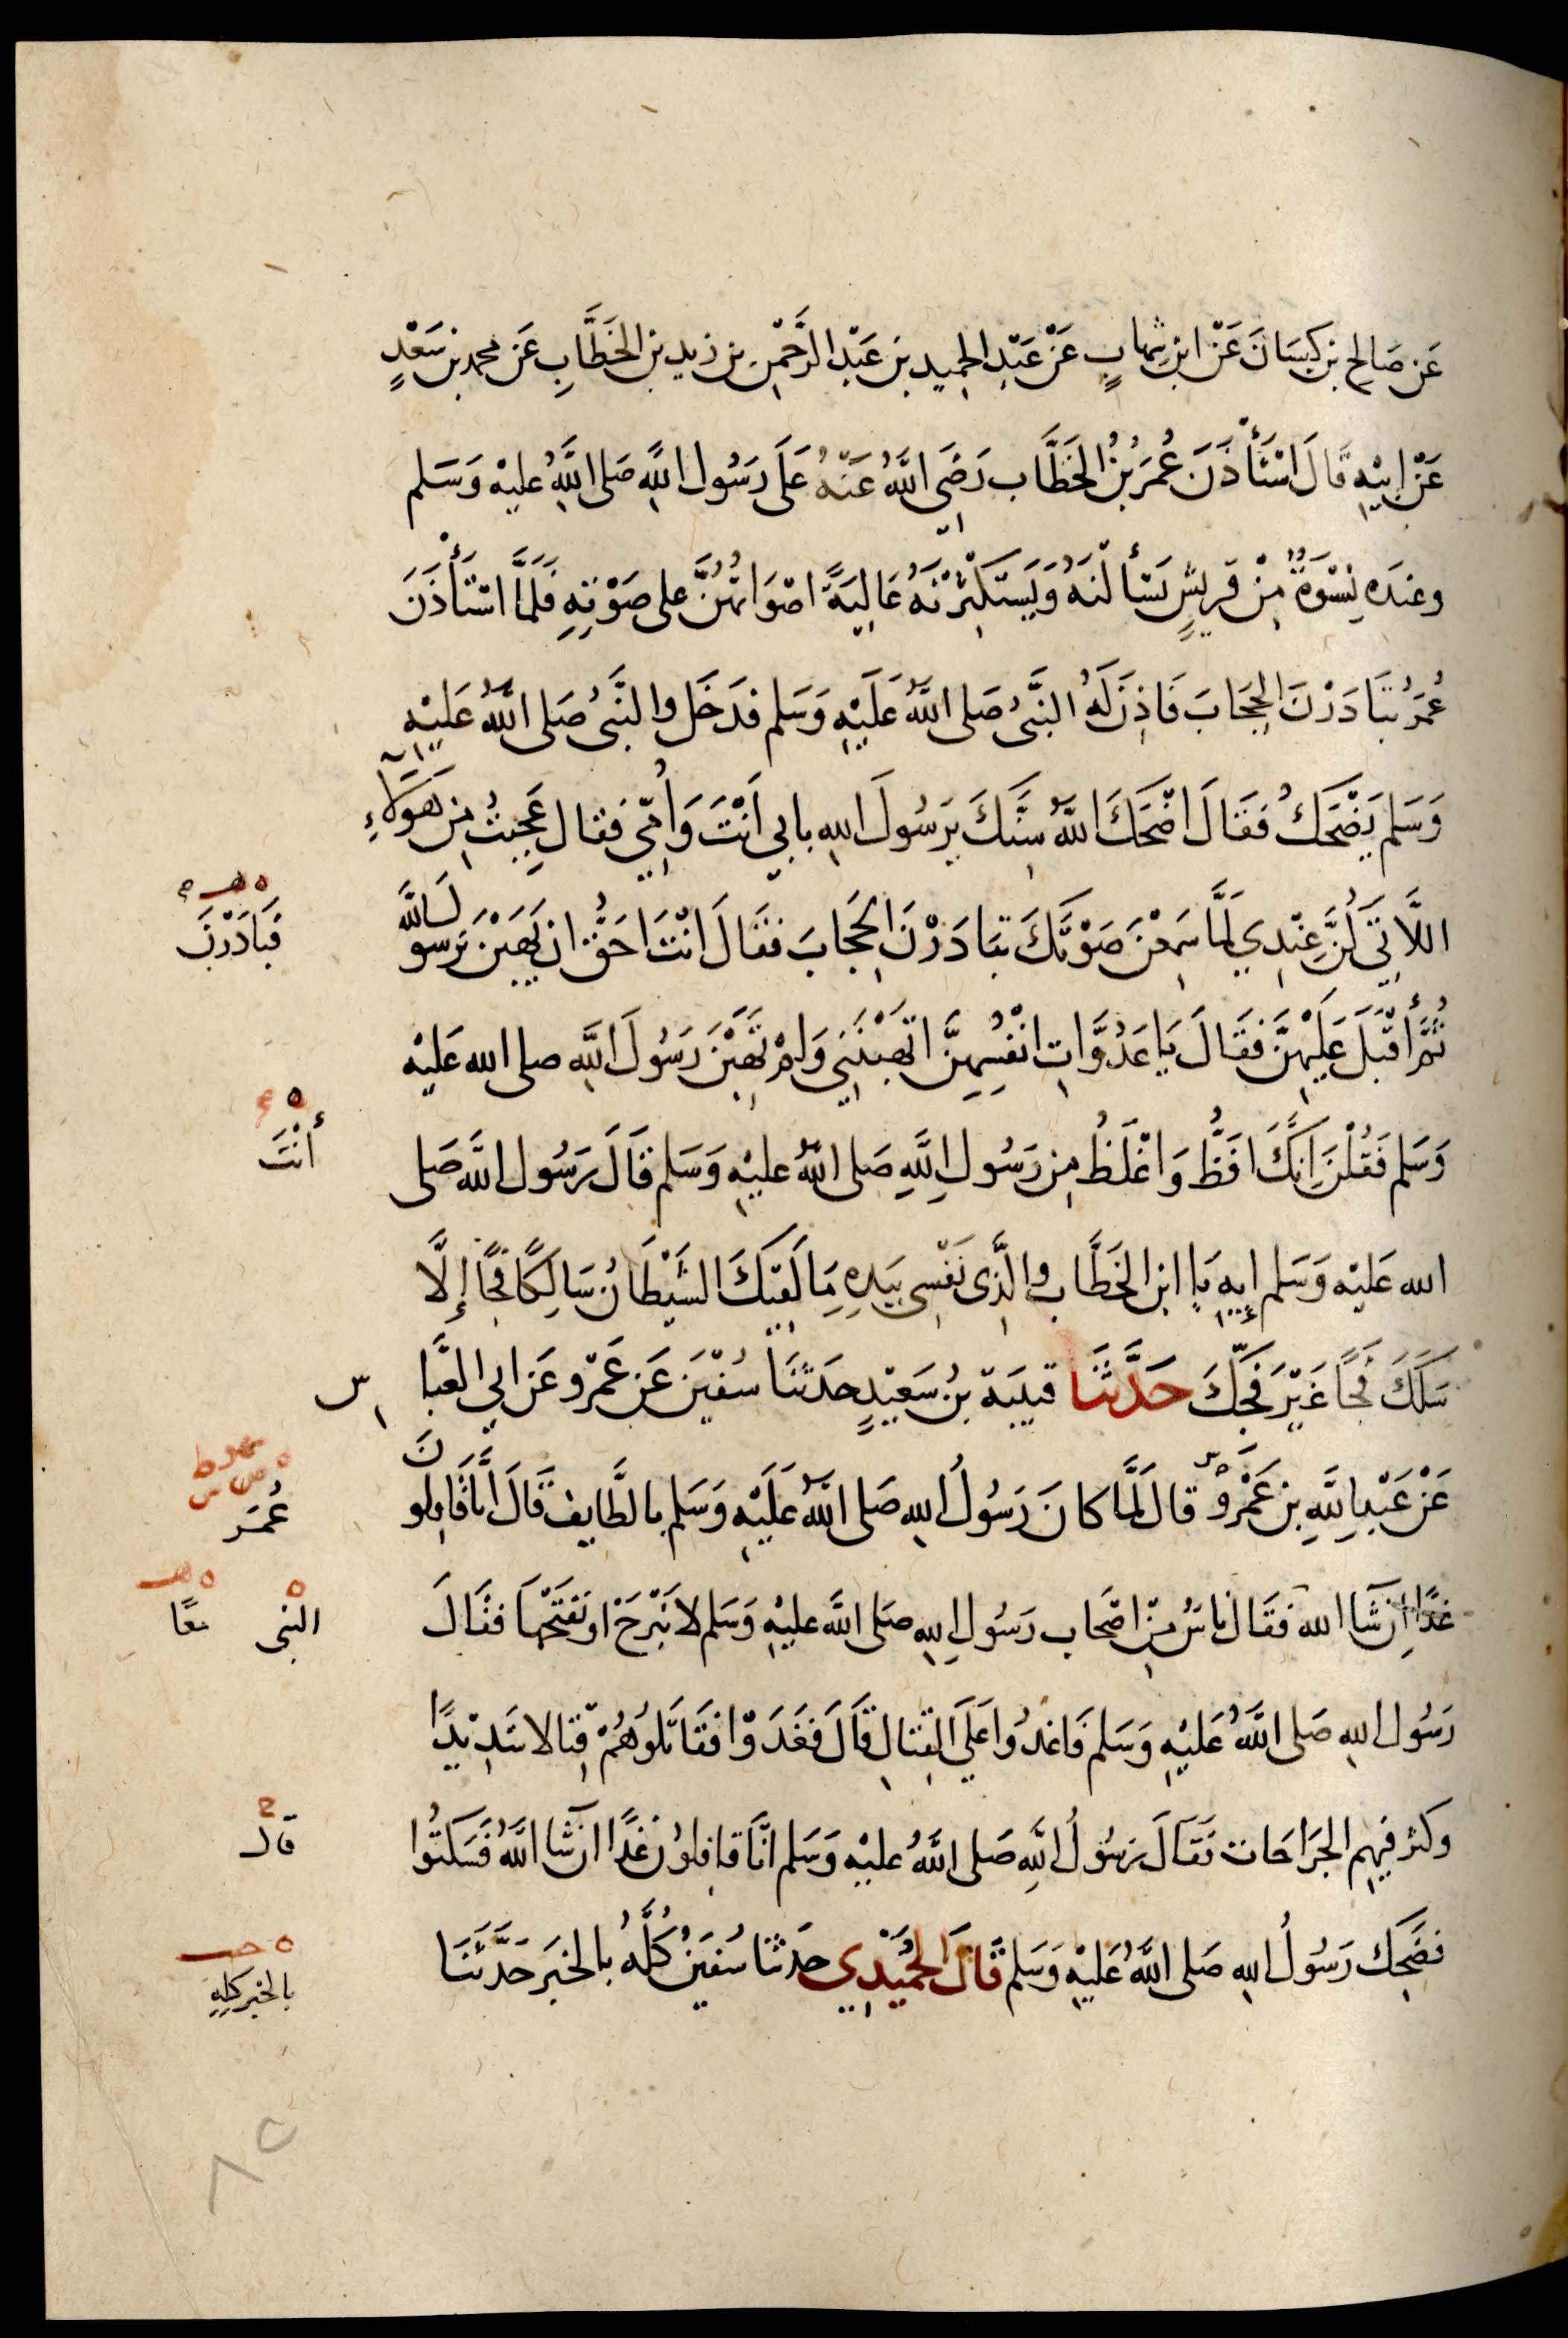 عَن صَالح بن كيسَانَ عَنْ ابن شِهابٍ عَنْ عَبْدِ الحميد بن عَبْدِ الرَّحْمٰنِ بن زيد بن الخَطَّابِ عَن محمد بن سَعْدٍ
عَنْ ابِيْهِ قَالَ اسْتَأْذَنَ عُمَرُ بْنُ الخَطَّاب رَضِيَ اللَّهُ عَنْهُ عَلَى رَسُول اللَّهِ صَلى اللَّهُ عليْه وَسَلم
وعندَه نِسْوَةٌ مِنْ قريشٍ يَسْأَلْنَهُ وَيَسْتَكْثِرْنَهُ عَالِيَةً اصْوَاتُهُنَّ على صَوْتِهِ فَلَمَّا اسْتَأْذَنَ
عُمَرُ تَبَادَرْنَ الحِجَابَ فَاذِنَ لَهُ النَّبيُّ صَلى اللَّهُ عَلَيْهِ وَسَلم فدَخَل والنَّبيُّ صَلى اللَّهُ عَلَيْهِ
وَسَلم يَضْحَكُ فقَالَ اضْحَكَ اللَّهُ سِنَّكَ يَرَسُولَ اللهِ بابي اَنْتَ وَاُمِّي فقال عَجِبْتُ مِن هَؤلَآءِ
اللَّاتِي كُنَّ عِنْدِي لَمَّا سَمِعْنَ صَوْتَكَ تبَادَرْنَ الحِجَابَ فقَالَ انْتَ احَقُّ ان يَهَبْنَ يَرَسولَ اللَّه
ثُمَّ أَقْبَلَ عَلَيْهِنَّ فقَالَ يَا عَدُوَّاتِ انْفُسِهِنَّ اتَهَبْنَنِي وَلمْ تَهَبْنَ رَسُولَ اللَّهِ صلى الله عَليْه
وَسَلم فَقُلْنَ اِنكَ افَظُّ وَاغْلَظُ مِن رَسُولِ اللَّهِ صَلى اللَّهُ عليْهِ وَسَلم قَالَ رَسُول اللَّه صَلى
الله عَليْه وَسَلم إِيهِ يَا ابن الخَطَّاب والَّذِى نَفْسِى بيَدِهِ مَا لَقِيَكَ الشَيْطَانُ سَالِكًا فَجًّا إِلَّا
سَلَكَ فجًا غَيْرَ فَجِّكَ حَدَّثَنَا قتيبَة بنُ سَعيْدٍ حَدثَنَا سُفيٰنَ عَن عَمْرو عَن ابي العَبَّاسِ
عَنْ عَبْدِ اللَّهِ بنِ عَمْروٍ قال لَمَّا كانَ رَسُولُ اللهِ صَلى اللَّهُ عَلَيْهِ وَسَلم بالطَّايف قَالَ اِنَّا قَافِلونَ
غدًا اِن شَا الله فقَال ناسٌ مِنْ اصْحَاب رَسُولِ اللهِ صَلى اللَّه عليْهِ وَسَلم لا نَبْرَحُ او نَفتَحْهَا فقَالَ
رَسُول اللهِ صَلى اللَّهُ عَلَيْهِ وَسَلم فَاغدُوا عَلَى القِتَالِ قَالَ فَغَدَوْا فقَاتَلوُهُمْ قِتالا شَدِيْدًا
وكثر فيهم الجَرَاحَات فَقَالَ رَسُولُ اللَّهِ صَلى اللَّهُ عليْهِ وَسَلم انَّا قافِلوُن غَدًا ان شَا اللَّهُ فَسَكَتُوا
فضَحِك رَسُولُ اللهِ صَلى اللَّهُ عَلَيْهِ وَسَلم قَالَ الحُمَيْدِي حَدثنَا سُفيٰنُ كُلَّهُ بالخبَر حَدَّثَنَا
فبَادَرْنَ
أَنْتَ
عُمَر
النبى
معًا
قال
بالخبر كلِهِ
٨٥